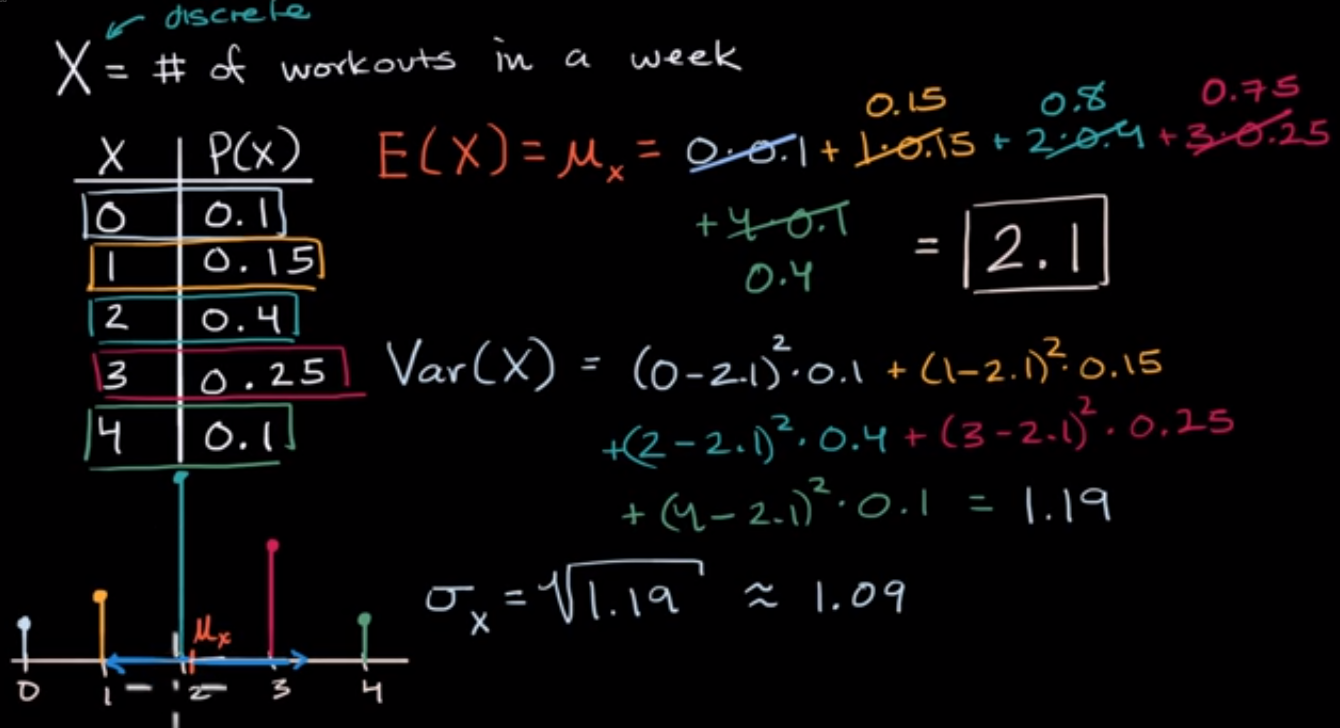 discrete
X = # of workouts in a week
X P(X)
0 0.1
1 0.15
2 0.4
3 0.25
4 0.1
0.15 0.8 0.75
E(X) = μₓ = 0·0.1 + 1·0.15 + 2·0.4 + 3·0.25
+ 4·0.1 = 2.1
0.4
Var(X) = (0-2.1)²·0.1 + (1-2.1)²·0.15
+(2-2.1)²·0.4 + (3-2.1)²·0.25
+ (4-2.1)²·0.1 = 1.19
σₓ = √1.19 ≈ 1.09
μₓ
0 1 2 3 4